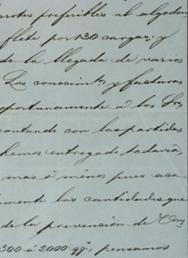 preferibles al algodon
flete por 130 cargas y
de la llegada de varios
Los conocimtos y facturas
oportunamente á los Sres
contando con las partidas
hemos entregado todavia
mas ó ménos pues
las cantidades que
de la prevencion de
300 á 2000 qqs, pensamos